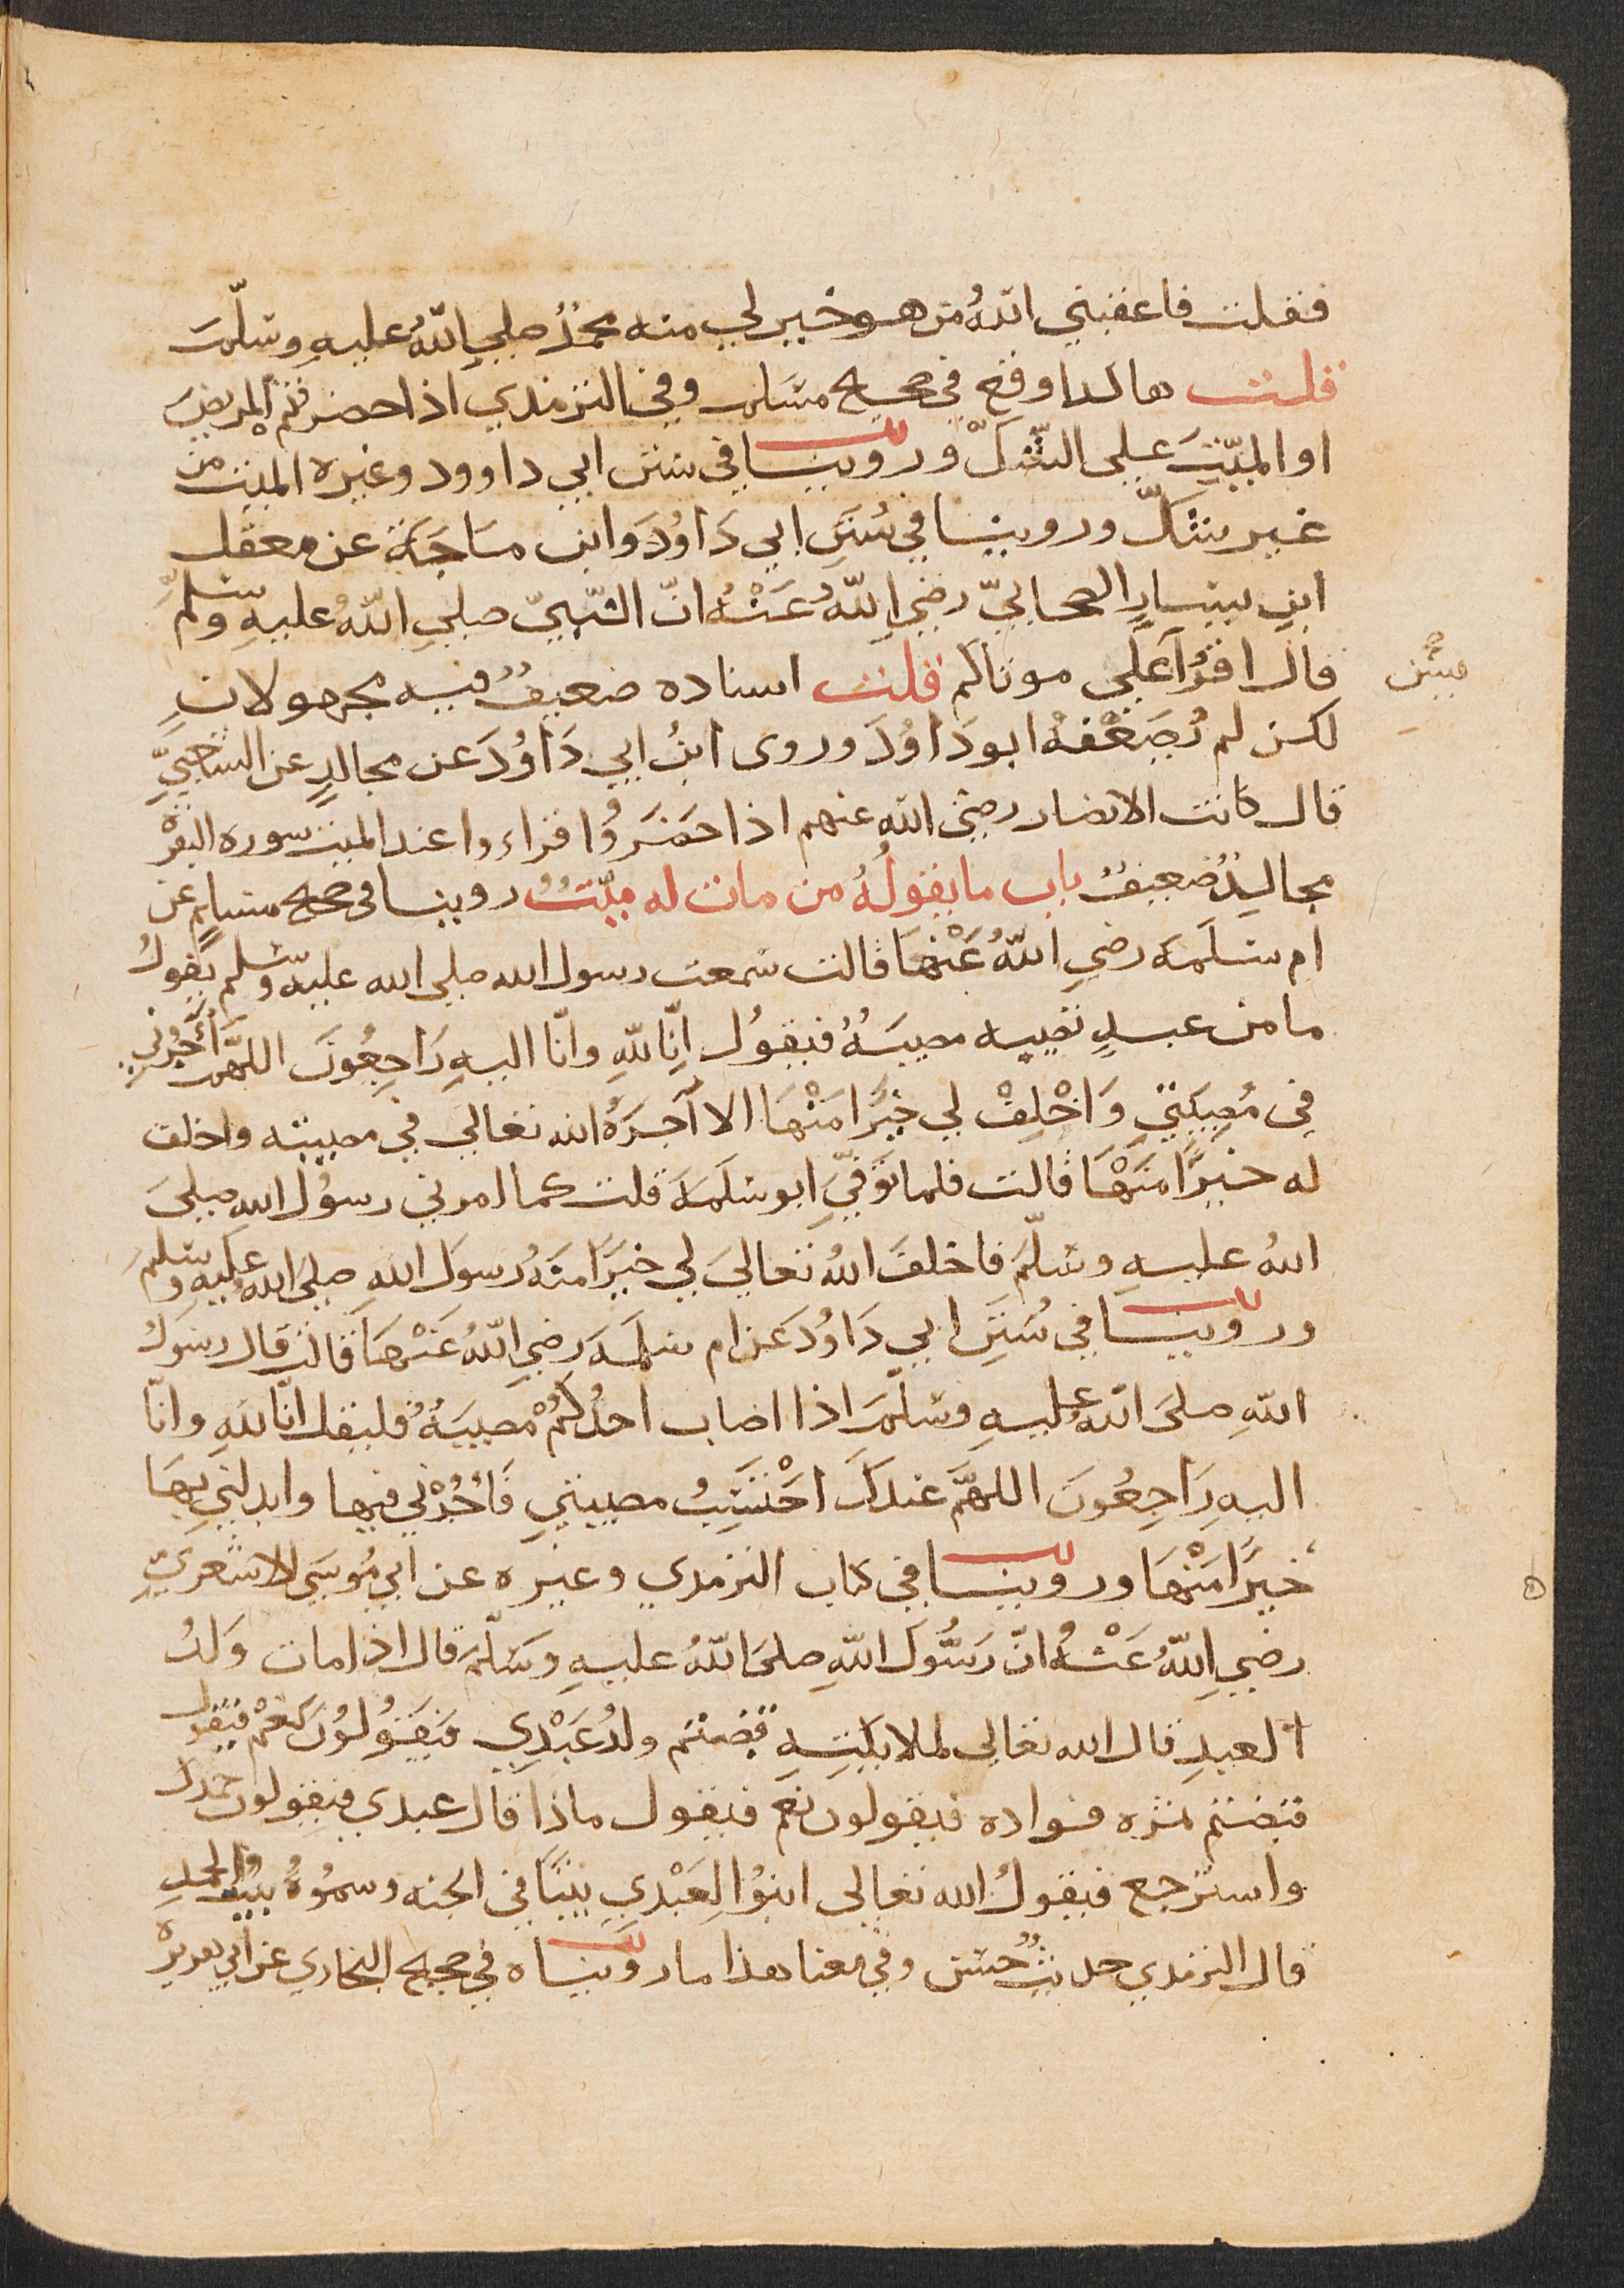 فقلت فاعقبني اللهُ من هو خير لي منه محمدٌ صلي اللهُ عليهِ وسلّمَ
قلت هاكذا وقع في صحيح مسلم وفي الترمذي اذا حضرتم المريضَ
او الميّتَ علي الشّكّ وروينا في سنن ابي داوود وغيره الميت من
غير شكّ وروينا في سُنَنِ ابي دَاوُدَ وابن مَاجَةَ عن معقل
ابنِ يسارِ الصحابيّ رضيِ اللهُ عَنْهُ انّ النّبيّ صلي اللهُ عليهِ وسلمّ
قال اقرُآ عَلَي موتاكم قلت اسناده ضعيفٌ فيه مجهولانِ
يسن
لكن لم يُضَعّفْهُ ابو دَاوُدَ وروى ابنُ ابي دَاوُدَ عن مجالدٍ عن الشعبيِّ
قال كانت الانصار رضي الله عنهم اذا حَضَرَوُا قراءوا عند الميت سوره البقرة
مجالدٌ ضعيفٌ باب ما يقولُهُ من مات له ميّتٌ روينا في صحيح مسلمٍ عن
ام سَلَمَه رضيِ اللهُ عَنْهَا قالت سمعت رسول الله صلي الله عليه وسلم يقولُ
ما من عبدٍ تصيبه مصيبةٌ فيقولُ اِنّا للهِ وانّا اليهِ رَاجِعُونَ اللهمّ أجُرْنِي
في مُصِيبَتِي وَاخْلِفْ لي خَيْرًا مِنْهَا الا آجَرَهُ الله تعالي في مصيبته واخلف
له خيرًا مِنْهَا قالت فلما تُوَفِّيَ ابو سَلَمَةَ قلت كما امرني رسُولُ اللهِ صلي
اللهُ عليهِ وسلّمَ فاخلفَ اللهُ تعاليَ لي خيرًا منهُ رسولَ اللهِ صليَ اللهُ عليهِ وسلمَ
وروينا في سُنَنِ ابي دَاوُدَ عن ام سلمَةَ رضيِ اللهُ عَنْهَا قالت قال رسولُ
اللهِ صلىَ اللهُ عليهِ وسلّمَ اذا اصاب احدُكُمْ مُصيبَةٌ فليقل انّا للهِ وانّا
اليهِ رَاجِعُونَ اللهمَّ عندكَ احْتَسِبُ مصيبتي فَاْجُرْنِي فيها وابدلني بِهَا
خَيْرًا مِنْهَا وروينا في كتاب الترمدي وغيره عن ابي مُوسَي الاشعريِّ
رضيِ اللهُ عَنْهُ انّ رَسُولَ اللهِ صلىَ اللهُ عليهِ وسَلّمَ قال اذا مات وَلدُ
العبدِ قال الله تعالي لملايكتِهِ قبضتم ولدُ عَبْدِي فيَقُولُونَ نعَمْ فيقول
قبضتم ثمره فواده فيقولون نعم فيقول ماذا قال عبدي فيقولون حمدك
واسترجع فيقولُ الله تعالي ابنُوا لِعَبْدِي بيتًا في الجنه وسمُوهُ بيتُ الحمدِ
قال الترمدي حديثٌ حسن وفي معنا هذا ما رويناه في صحيح البخاري عن ابي هريره